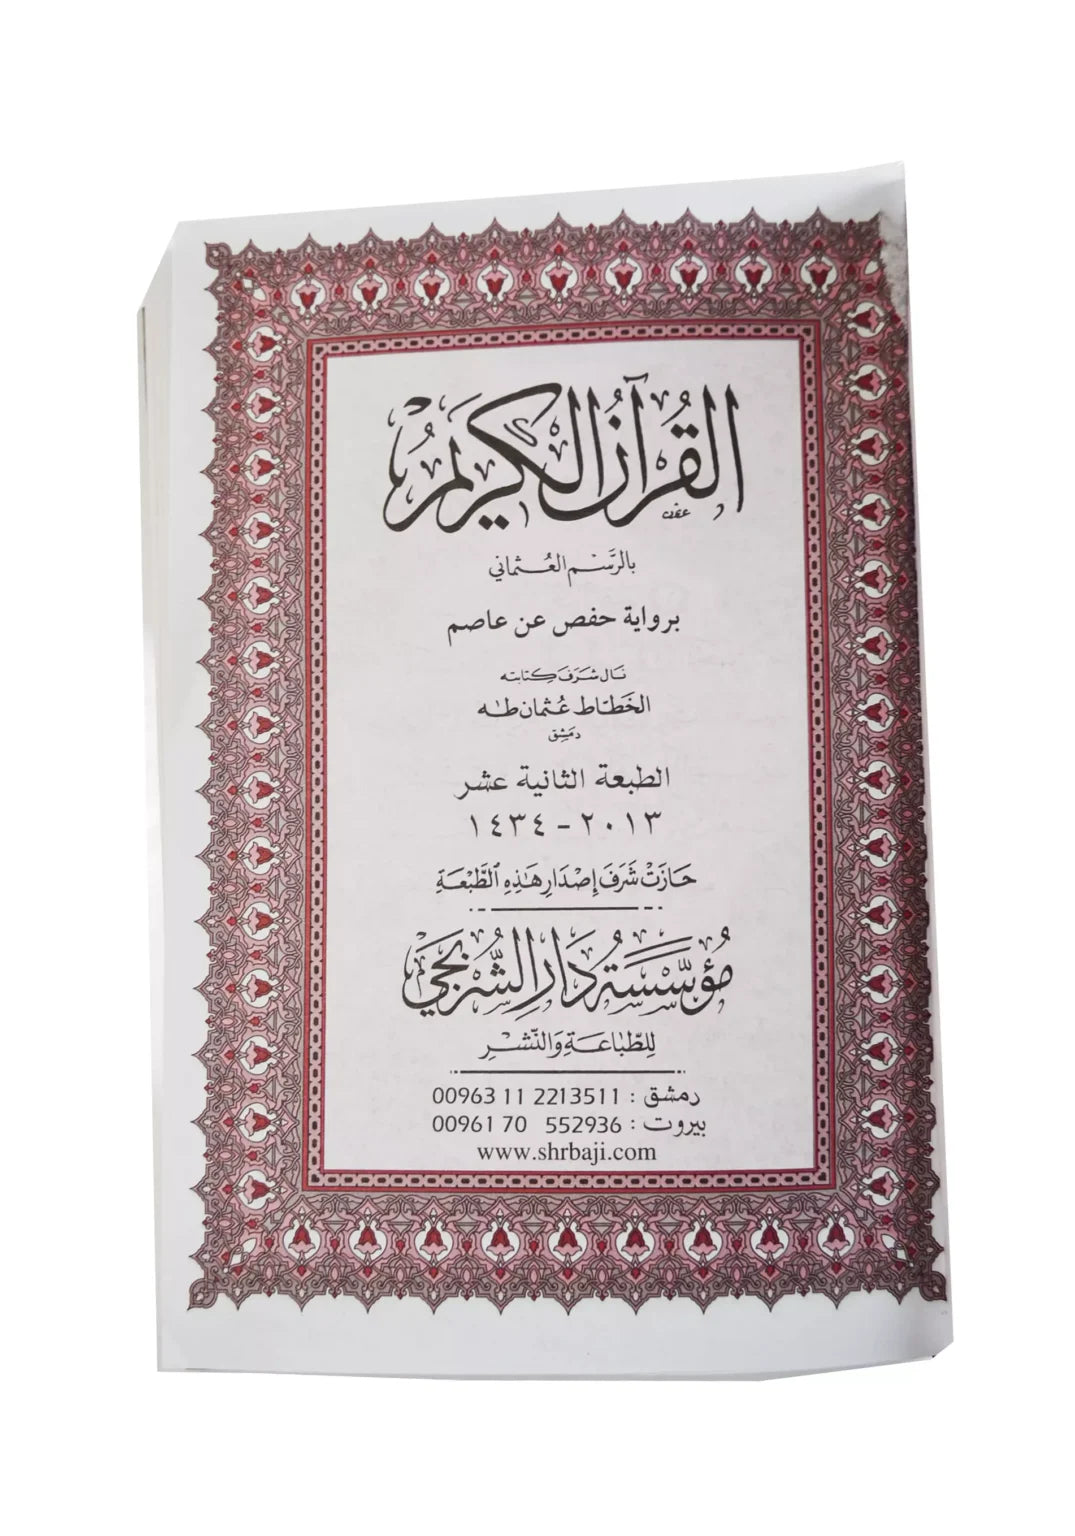 القُرآنُ الكَرِيمُ
بالرَّسم العُثماني
برواية حفص عن عاصم
نَال شَرَفَ كِتَابته
الخَطّاط عُثمان طٰه
دمَشِق
الطبعة الثانية عشر
٢٠١٣ - ١٤٣٤
حَازَتْ شَرَفَ إِصْدَارِ هَٰذِهِ ٱلطَّبْعَةِ
مُؤَسَّسَةُ دَارِ الشُّرْبَجِي
لِلطِّبَاعَةِ وَالنَّشْرِ
دمشق : 00963 11 2213511
بيروت : 00961 70 552936
www.shrbaji.com